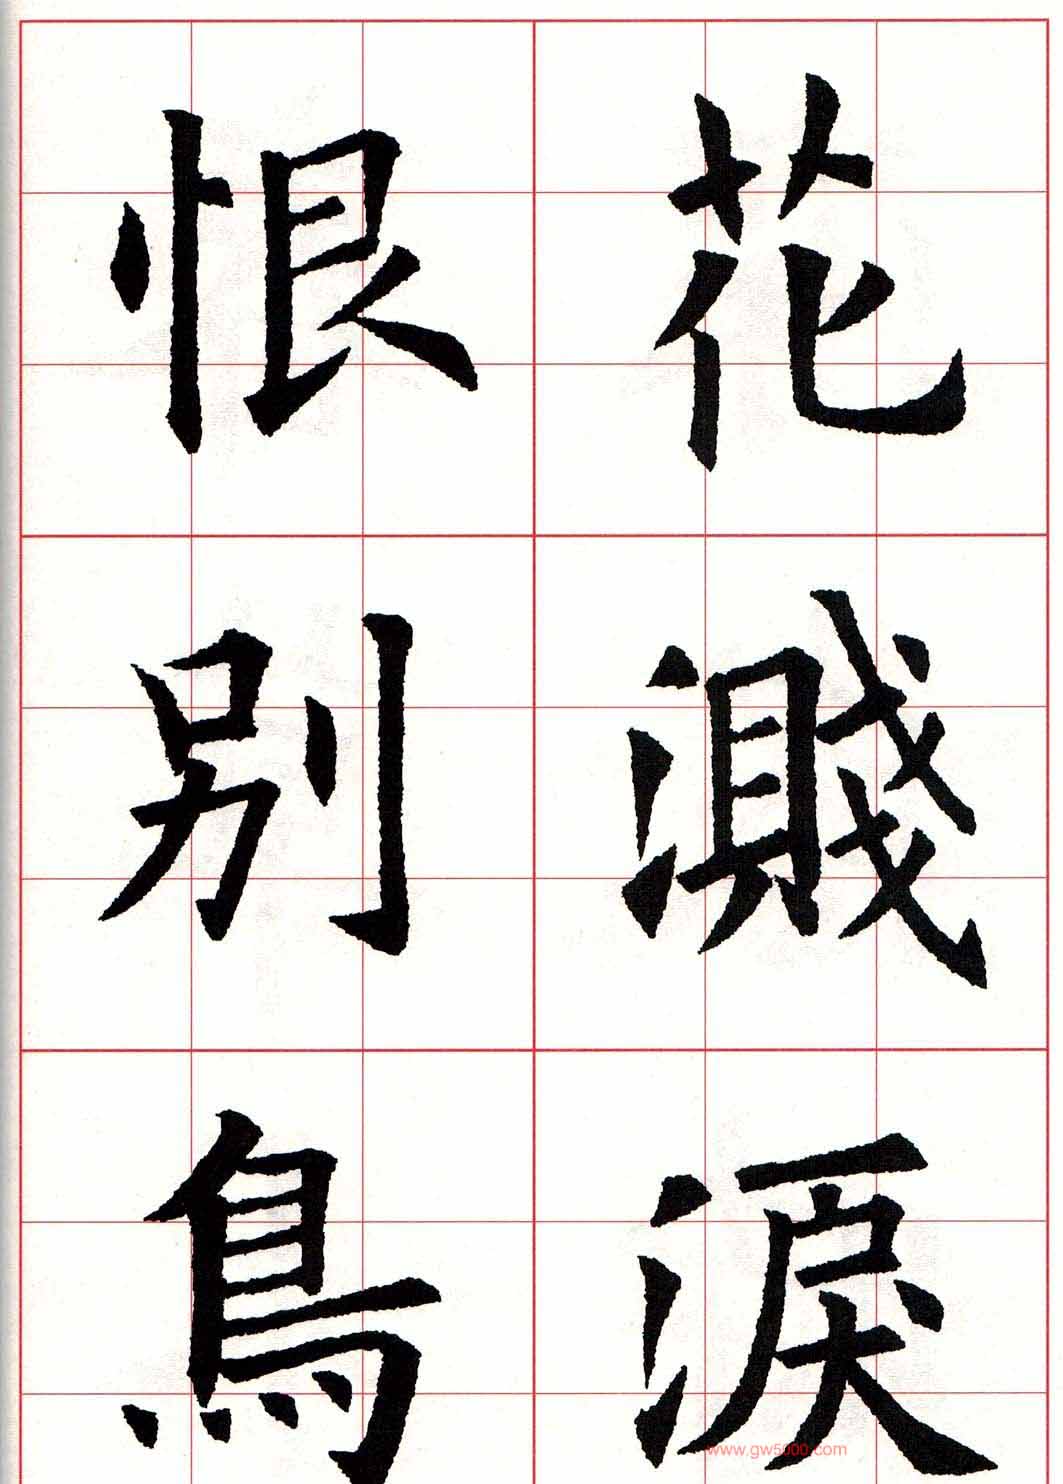 花濺淚
恨別鳥
www.gw5000.com